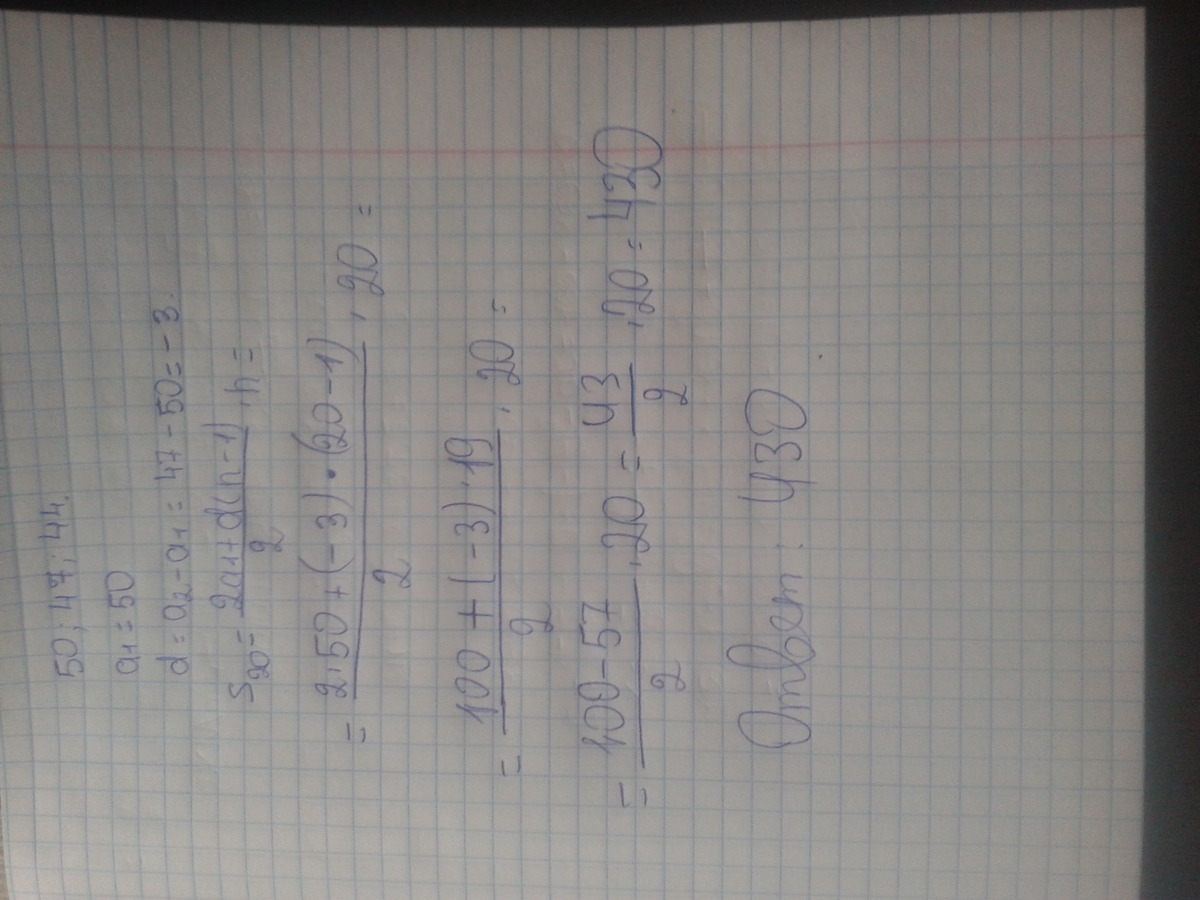 50; 47; 44.
a1 = 50
d = a2 - a1 = 47 - 50 = -3.
S20 = (2a1 + d(n-1))/2 · n =
= (2·50 + (-3)·(20-1))/2 · 20 =
= (100 + (-3)·19)/2 · 20 =
= (100-57)/2 · 20 = 43/2 · 20 = 430
Ответ: 430